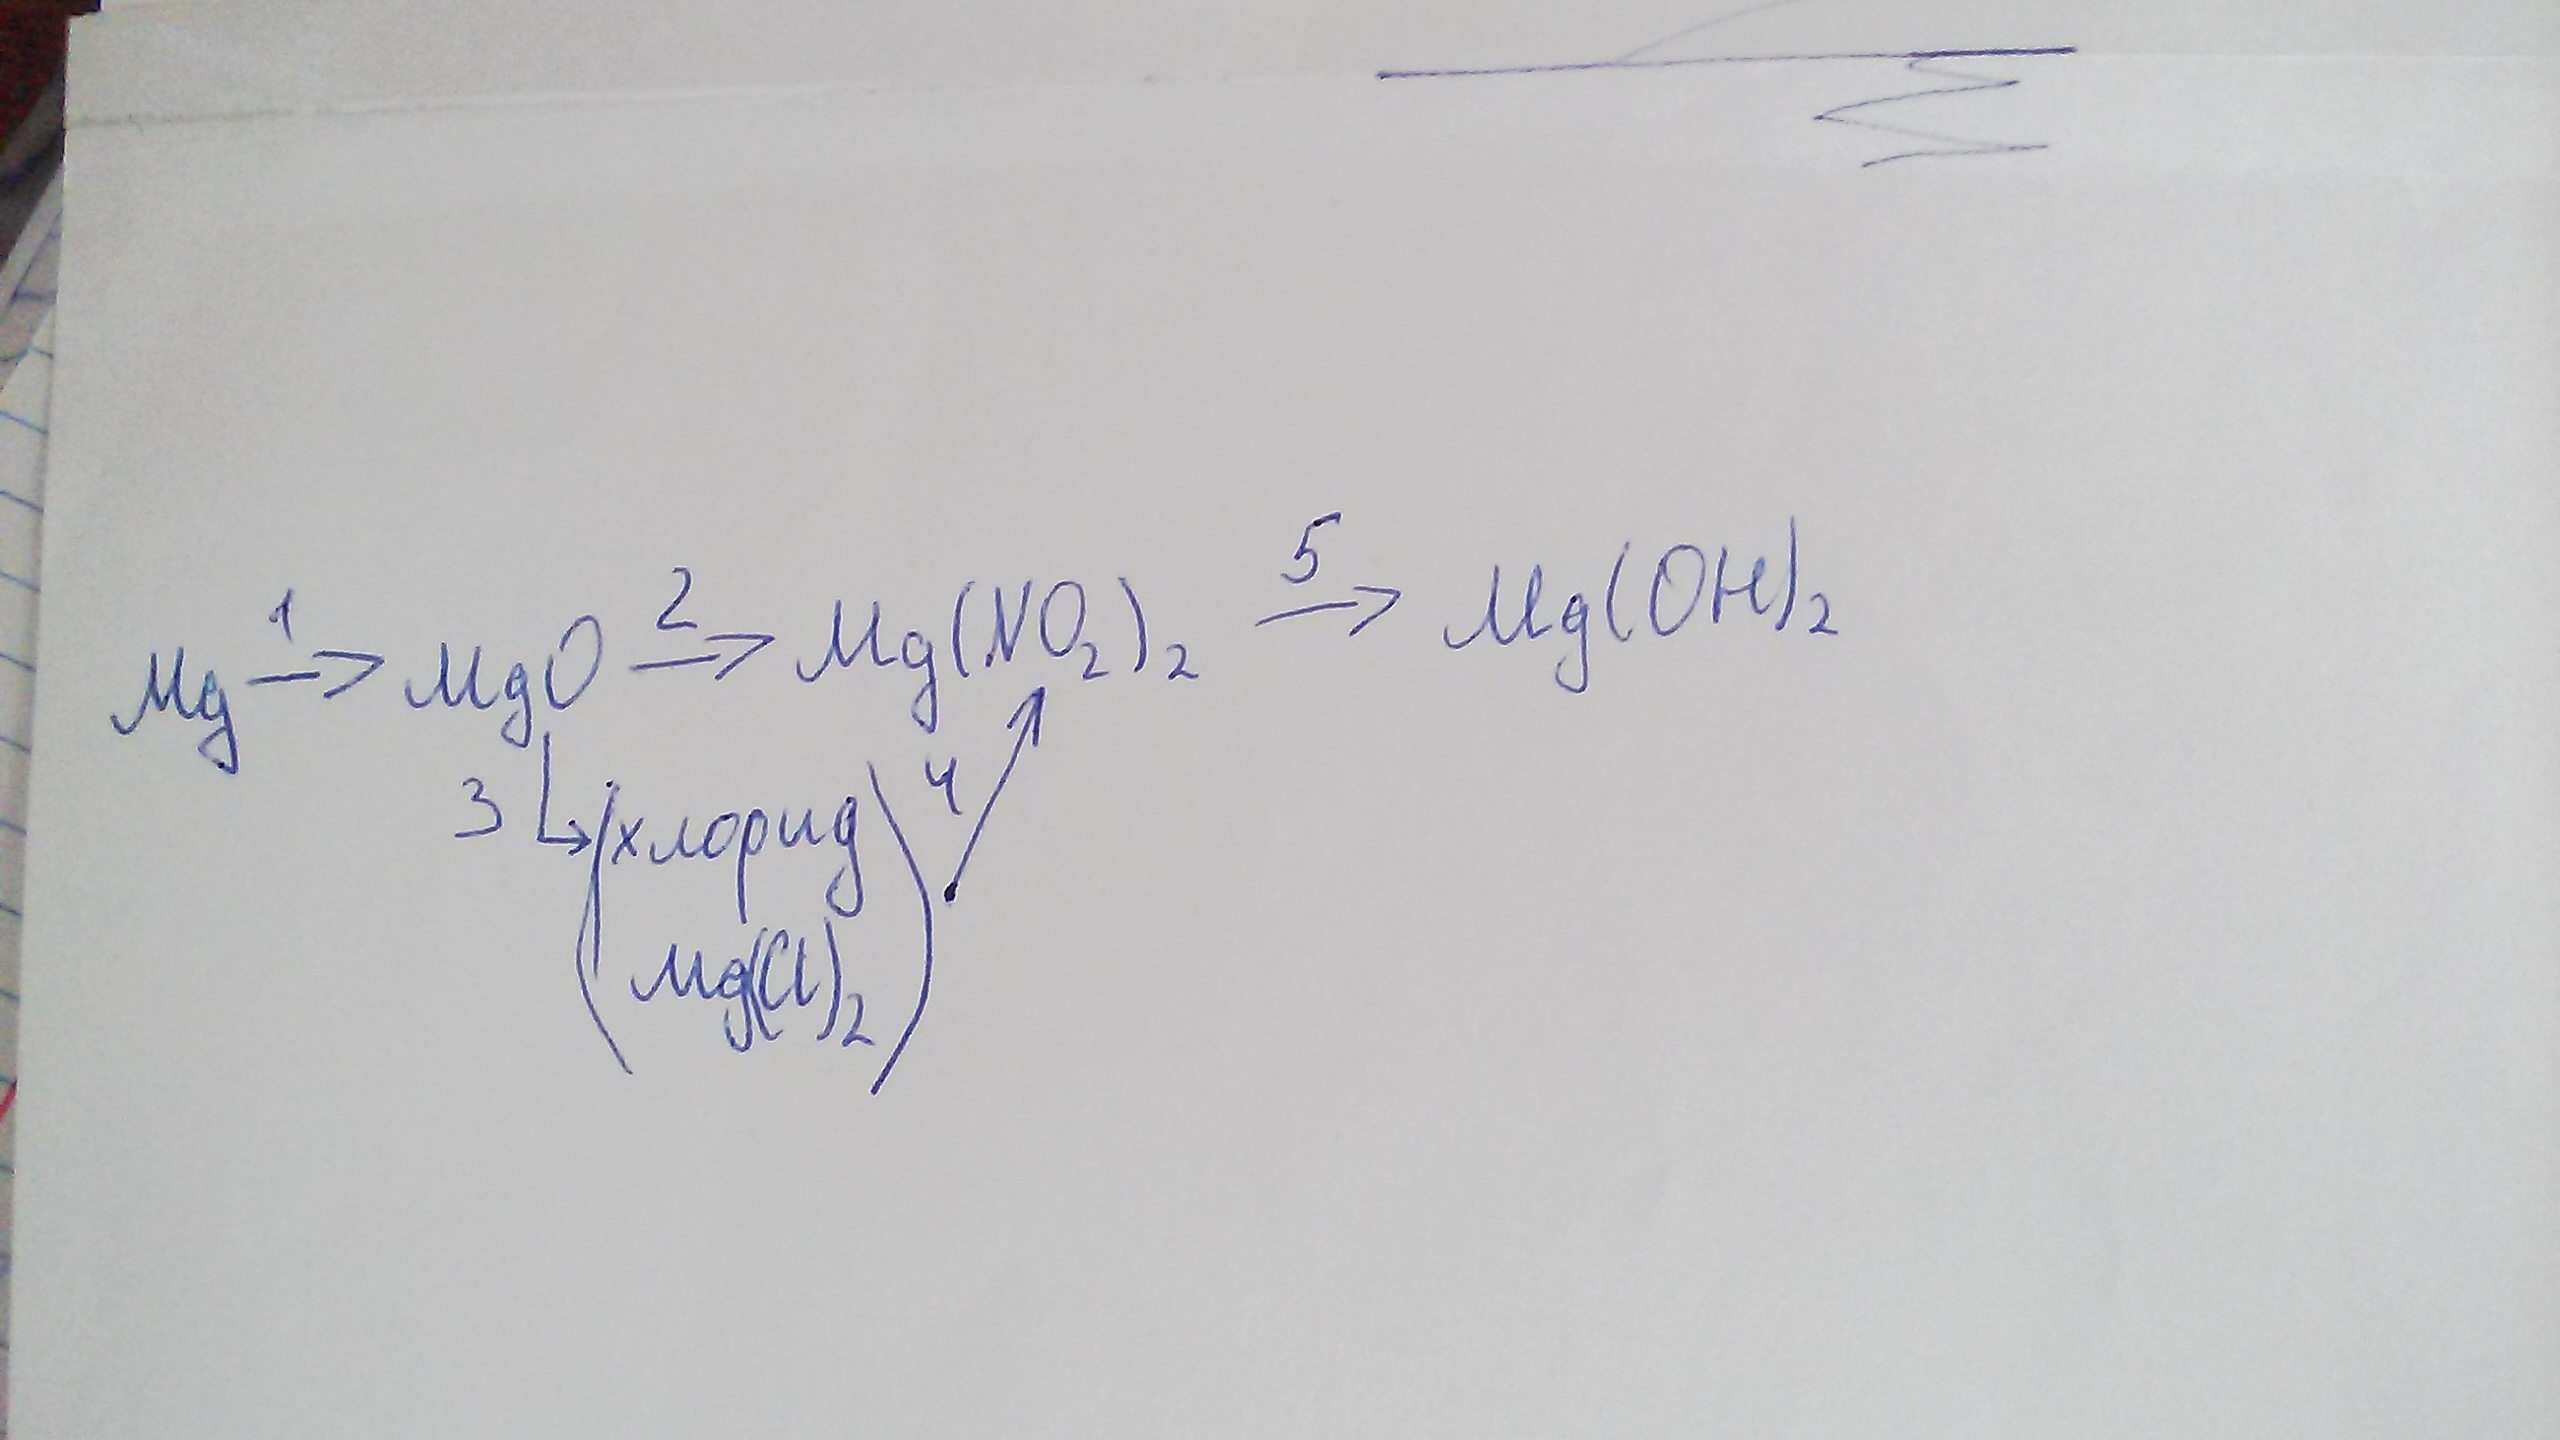 Mg 1→ MgO 2→ Mg(NO₂)₂ 5→ Mg(OH)₂
3 ↳ (хлорид 4
Mg(Cl)₂)